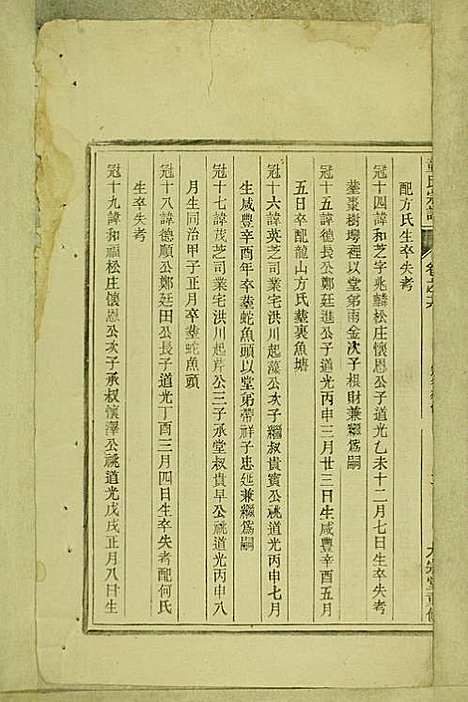 配方氏生卒失考
冠十四諱和芝字兆麟松庄懷恩公子道光乙未十二月七日生卒失考
葬棗樹塆裡以堂弟雨金次子根財兼繼爲嗣
冠十五諱德長公鄭廷進公子道光丙申三月廿三日生咸豐辛酉五月
五日卒配龍山方氏葬裏魚塘
冠十六諱英芝司業宅洪川起藻公次子繼叔貴賓公祧道光丙申七月
生咸豐辛酉年卒葬蛇魚頭以堂弟帶祥子忠延兼繼爲嗣
冠十七諱茂芝司業宅洪川起芹公三子承堂叔貴早公祧道光丙申八
月生同治甲子正月卒葬蛇魚頭
冠十八諱德順公鄭廷田公長子道光丁酉三月四日生卒失考配何氏
生卒失考
冠十九諱和福松庄懷恩公次子承叔懷澤公祧道光戊戌正月八日生